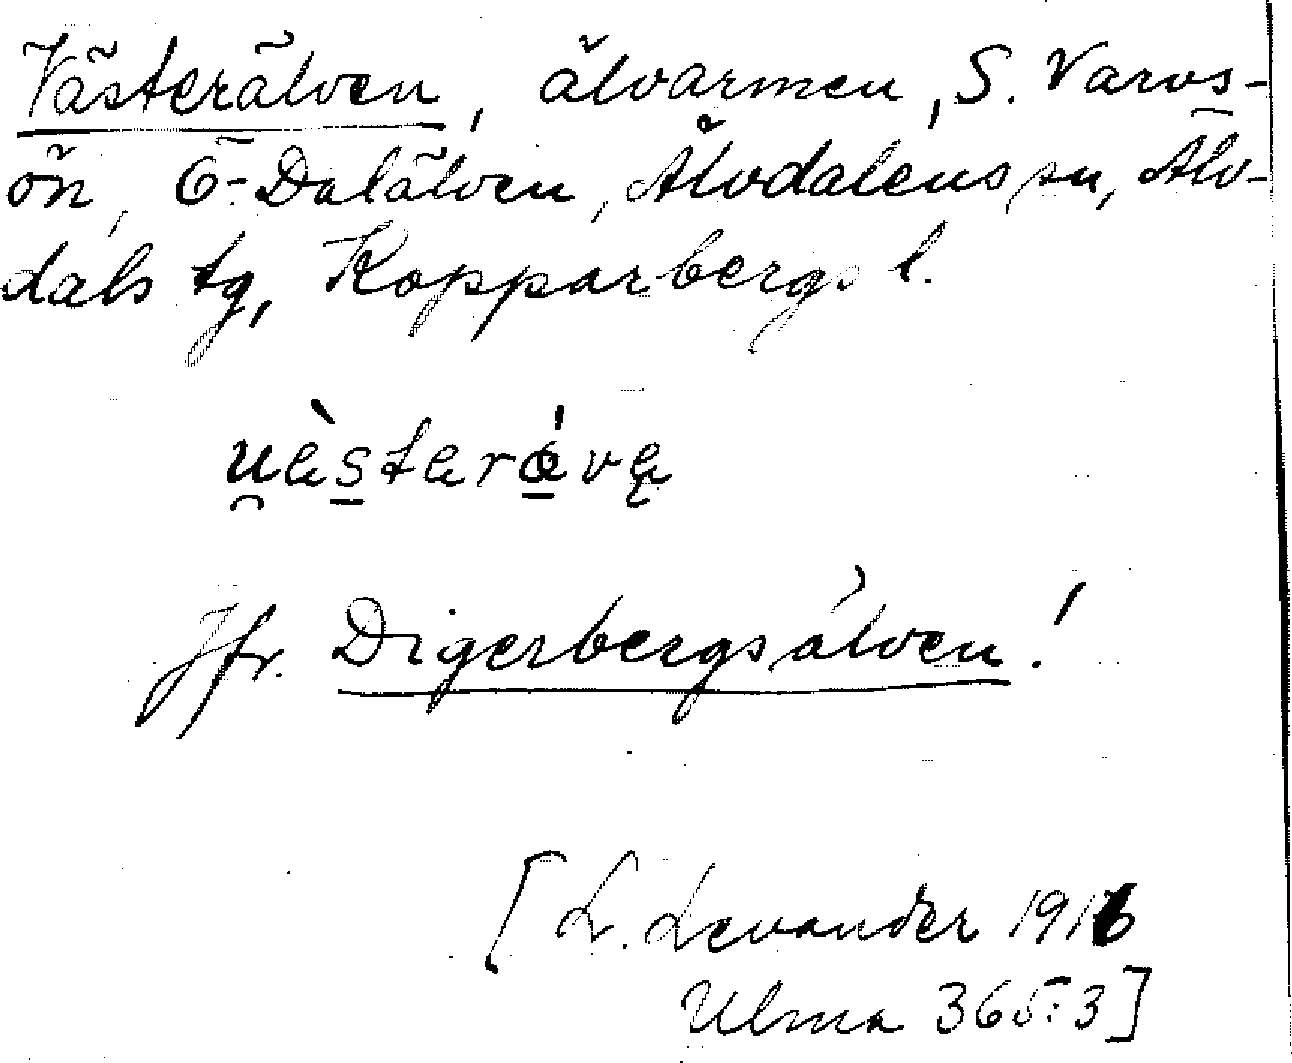 Västerälven, älvarmen, S. Varvs-
ön, Ö-Dalälven, Älvdalens sn, Älv-
dals tg, Kopparbergs l.
Jfr. Digerbergsälven!
[L. Levander 1916
Ulma 365:3]